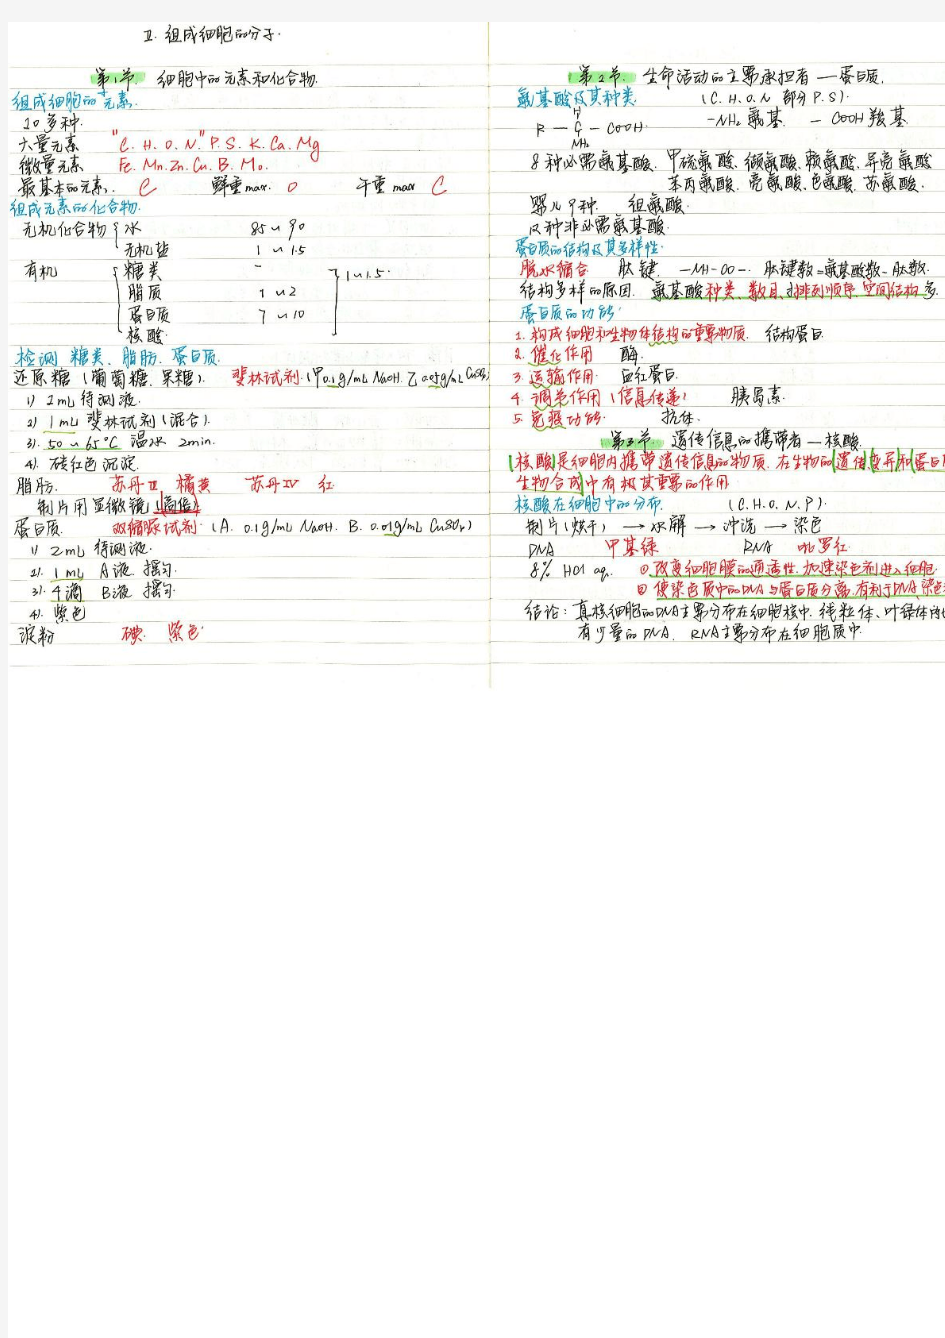 II. 组成细胞的分子.
第1节. 细胞中的元素和化合物.
组成细胞的元素.
20多种.
大量元素 "C. H. O. N." P. S. K. Ca. Mg
微量元素 Fe. Mn. Zn. Cu. B. Mo.
最基本的元素. C 鲜重max. O 干重max C
组成元素的化合物.
无机化合物 { 水 85~90
无机盐 1~1.5
有机 { 糖类 - ] 1~1.5.
脂质 1~2
蛋白质 7~10
核酸
检测 糖类、脂肪、蛋白质.
还原糖 (葡萄糖. 果糖). 斐林试剂. (甲 0.1g/mL NaOH. 乙 0.05g/mL CuSO4)
1) 2mL 待测液.
2) 1mL 斐林试剂 (混合).
3). 50~65℃ 温水 2min.
4). 砖红色沉淀.
脂肪. 苏丹III 橘黄 苏丹IV 红
制片用显微镜 (高倍)
蛋白质. 双缩脲试剂. (A. 0.1g/mL NaOH. B. 0.01g/mL CuSO4)
1) 2mL 待测液.
2). 1mL A液 摇匀.
3). 4滴 B液 摇匀.
4). 紫色
淀粉 碘. 紫色.
第2节. 生命活动的主要承担者—蛋白质.
氨基酸及其种类. (C. H. O. N 部分P. S).
H
R — C — COOH. -NH2 氨基. -COOH 羧基
NH2
8种必需氨基酸. 甲硫氨酸、缬氨酸、赖氨酸、异亮氨酸
苯丙氨酸、亮氨酸、色氨酸、苏氨酸.
婴儿9种. 组氨酸.
12种非必需氨基酸.
蛋白质的结构及其多样性.
脱水缩合 肽键. —NH-CO—. 肽键数=氨基酸数-肽数.
结构多样的原因. 氨基酸种类、数目、排列顺序、空间结构多
蛋白质的功能.
1. 构成细胞和生物体结构的重要物质. 结构蛋白.
2. 催化作用 酶.
3. 运输作用. 血红蛋白.
4. 调节作用 (信息传递) 胰岛素.
5. 免疫功能. 抗体.
第3节. 遗传信息的携带者—核酸.
核酸是细胞内携带遗传信息的物质. 在生物的遗传变异和蛋白
生物合成中有极其重要的作用
核酸在细胞中的分布. (C. H. O. N. P).
制片 (烘干) → 水解 → 冲洗 → 染色
DNA 甲基绿 RNA 吡罗红.
8% HCl aq. ①改变细胞膜的通透性. 加速染色剂进入细胞.
②使染色质中的DNA与蛋白质分离. 有利于DNA染色
结论: 真核细胞的DNA主要分布在细胞核中. 线粒体、叶绿体内
有少量的DNA. RNA主要分布在细胞质中.